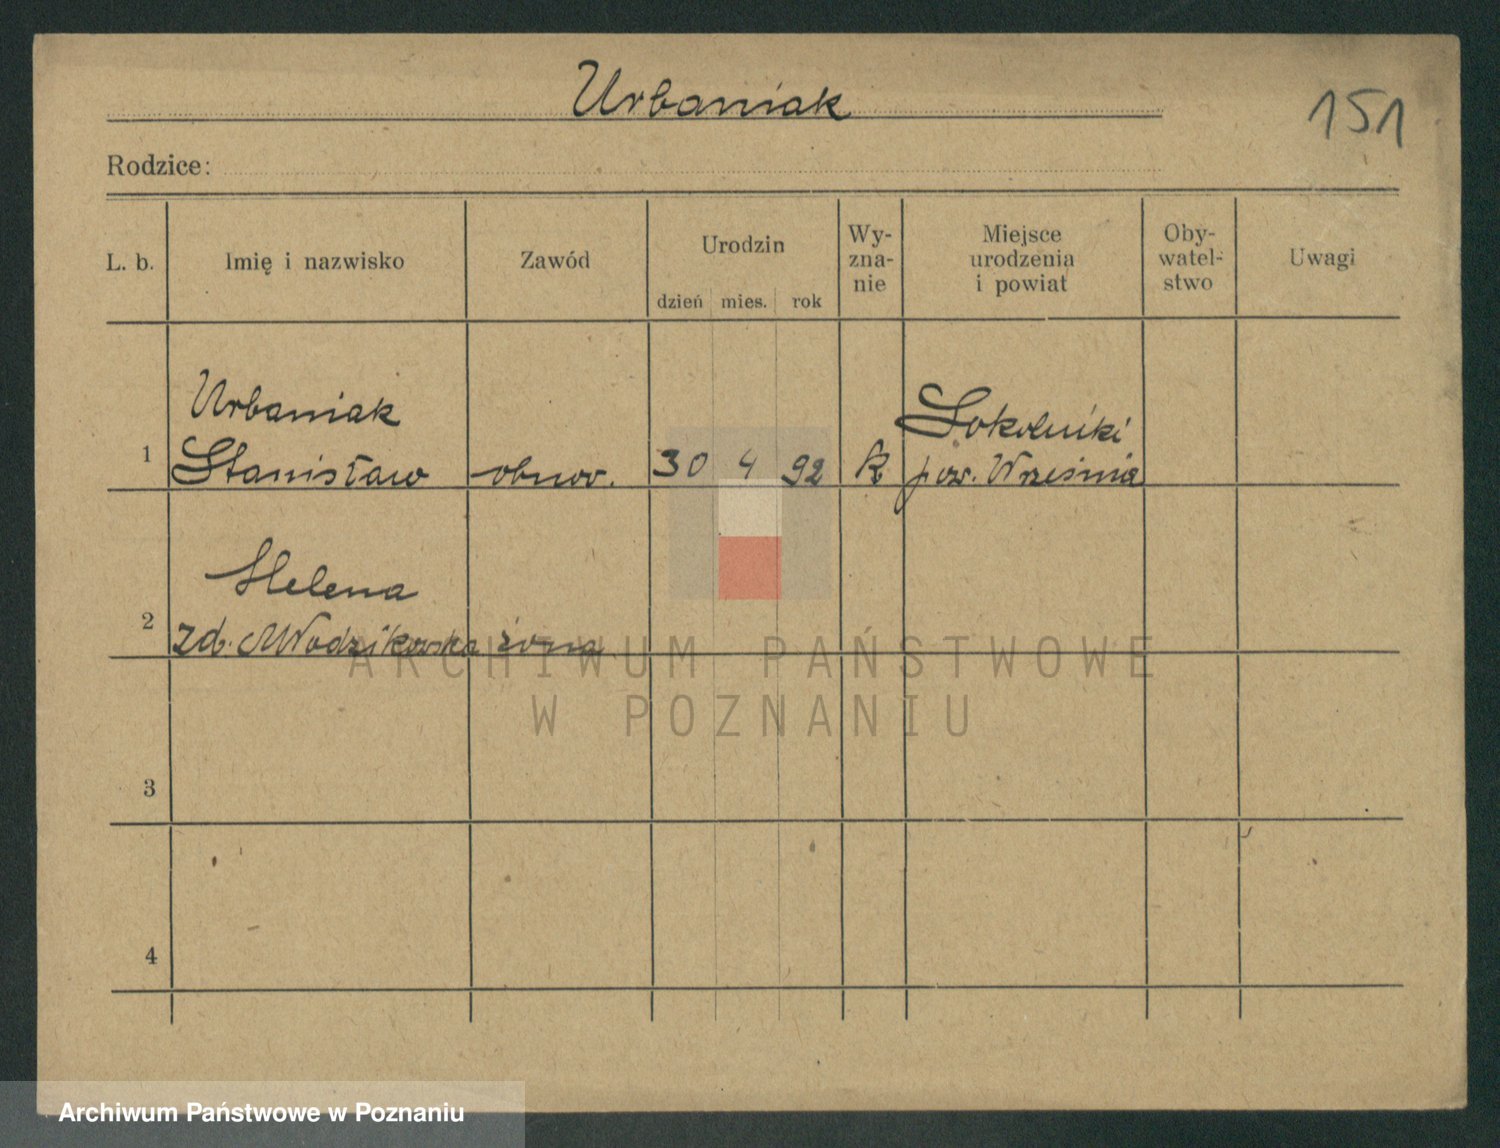 Urbaniak
151
Rodzice:
L. b.
Imię i nazwisko
Zawód
Urodzin
dzień mies. rok
Wy-
zna-
nie
Miejsce
urodzenia
i powiat
Oby-
watel-
stwo
Uwagi
Urbaniak
1 Stanisław
30 4 92 k
Sokolniki
pow. Września
Helena
2 zd. Włodzikowska żona
3
4
ARCHIWUM PAŃSTWOWE
W POZNANIU
Archiwum Państwowe w Poznaniu